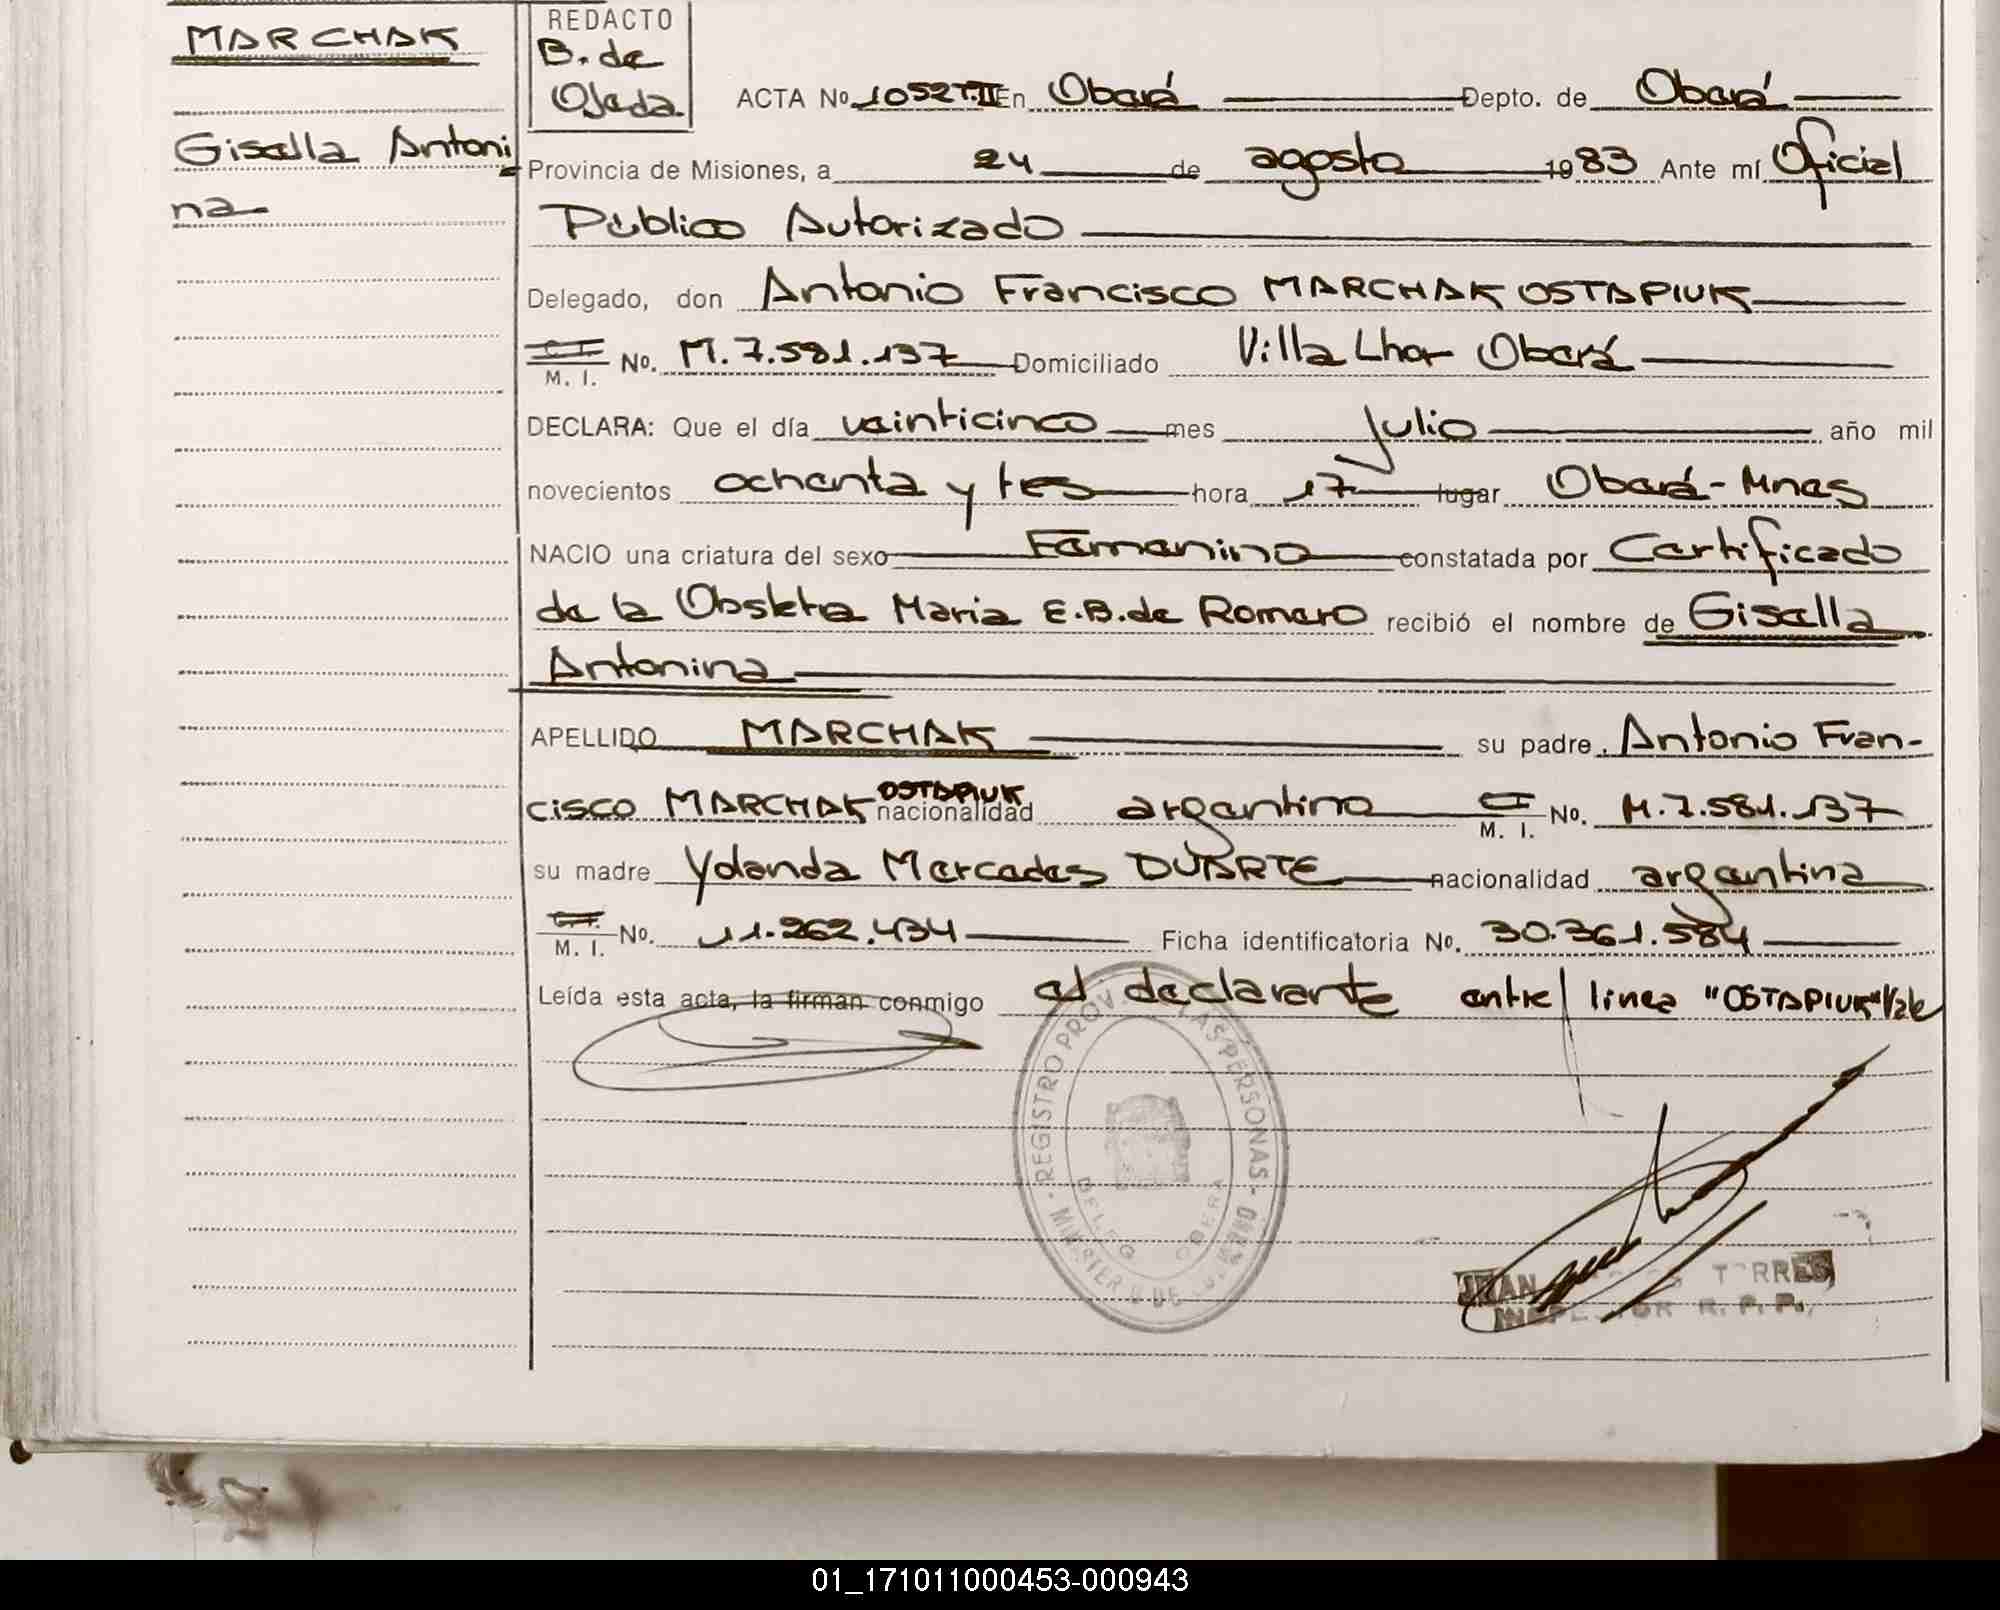 MARCHAK
Gisella Antoni
na
REDACTO
B. de
Ojeda
ACTA No. 1052 T.II En Oberá Depto. de Oberá
Provincia de Misiones, a 24 de agosto 1983 Ante mí Oficial
Público Autorizado
Delegado, don Antonio Francisco MARCHAK OSTAPIUK
C. I.
M. I. No. M.7.581.137 Domiciliado Villa Lhor Oberá
DECLARA: Que el día veinticinco mes Julio año mil
novecientos ochenta y tres hora 17 lugar Oberá-Mnes
NACIO una criatura del sexo Femenino constatada por Certificado
de la Obstetra Maria E.B. de Romero recibió el nombre de Gisella
Antonina
APELLIDO MARCHAK su padre Antonio Fran-
OSTAPIUK
cisco MARCHAK nacionalidad argentino C I
M. I. No. M.7.581.137
su madre Yolanda Mercedes DUARTE nacionalidad argentina
C. I.
M. I. No. 11.262.434 Ficha identificatoria No. 30.361.584
Leída esta acta, la firman conmigo el declarante entre linea "OSTAPIUK" Vale
REGISTRO PROV. LAS PERSONAS
DELEG OBERA
JUAN TORRES
INSPECTOR R. P. P.
01_171011000453-000943